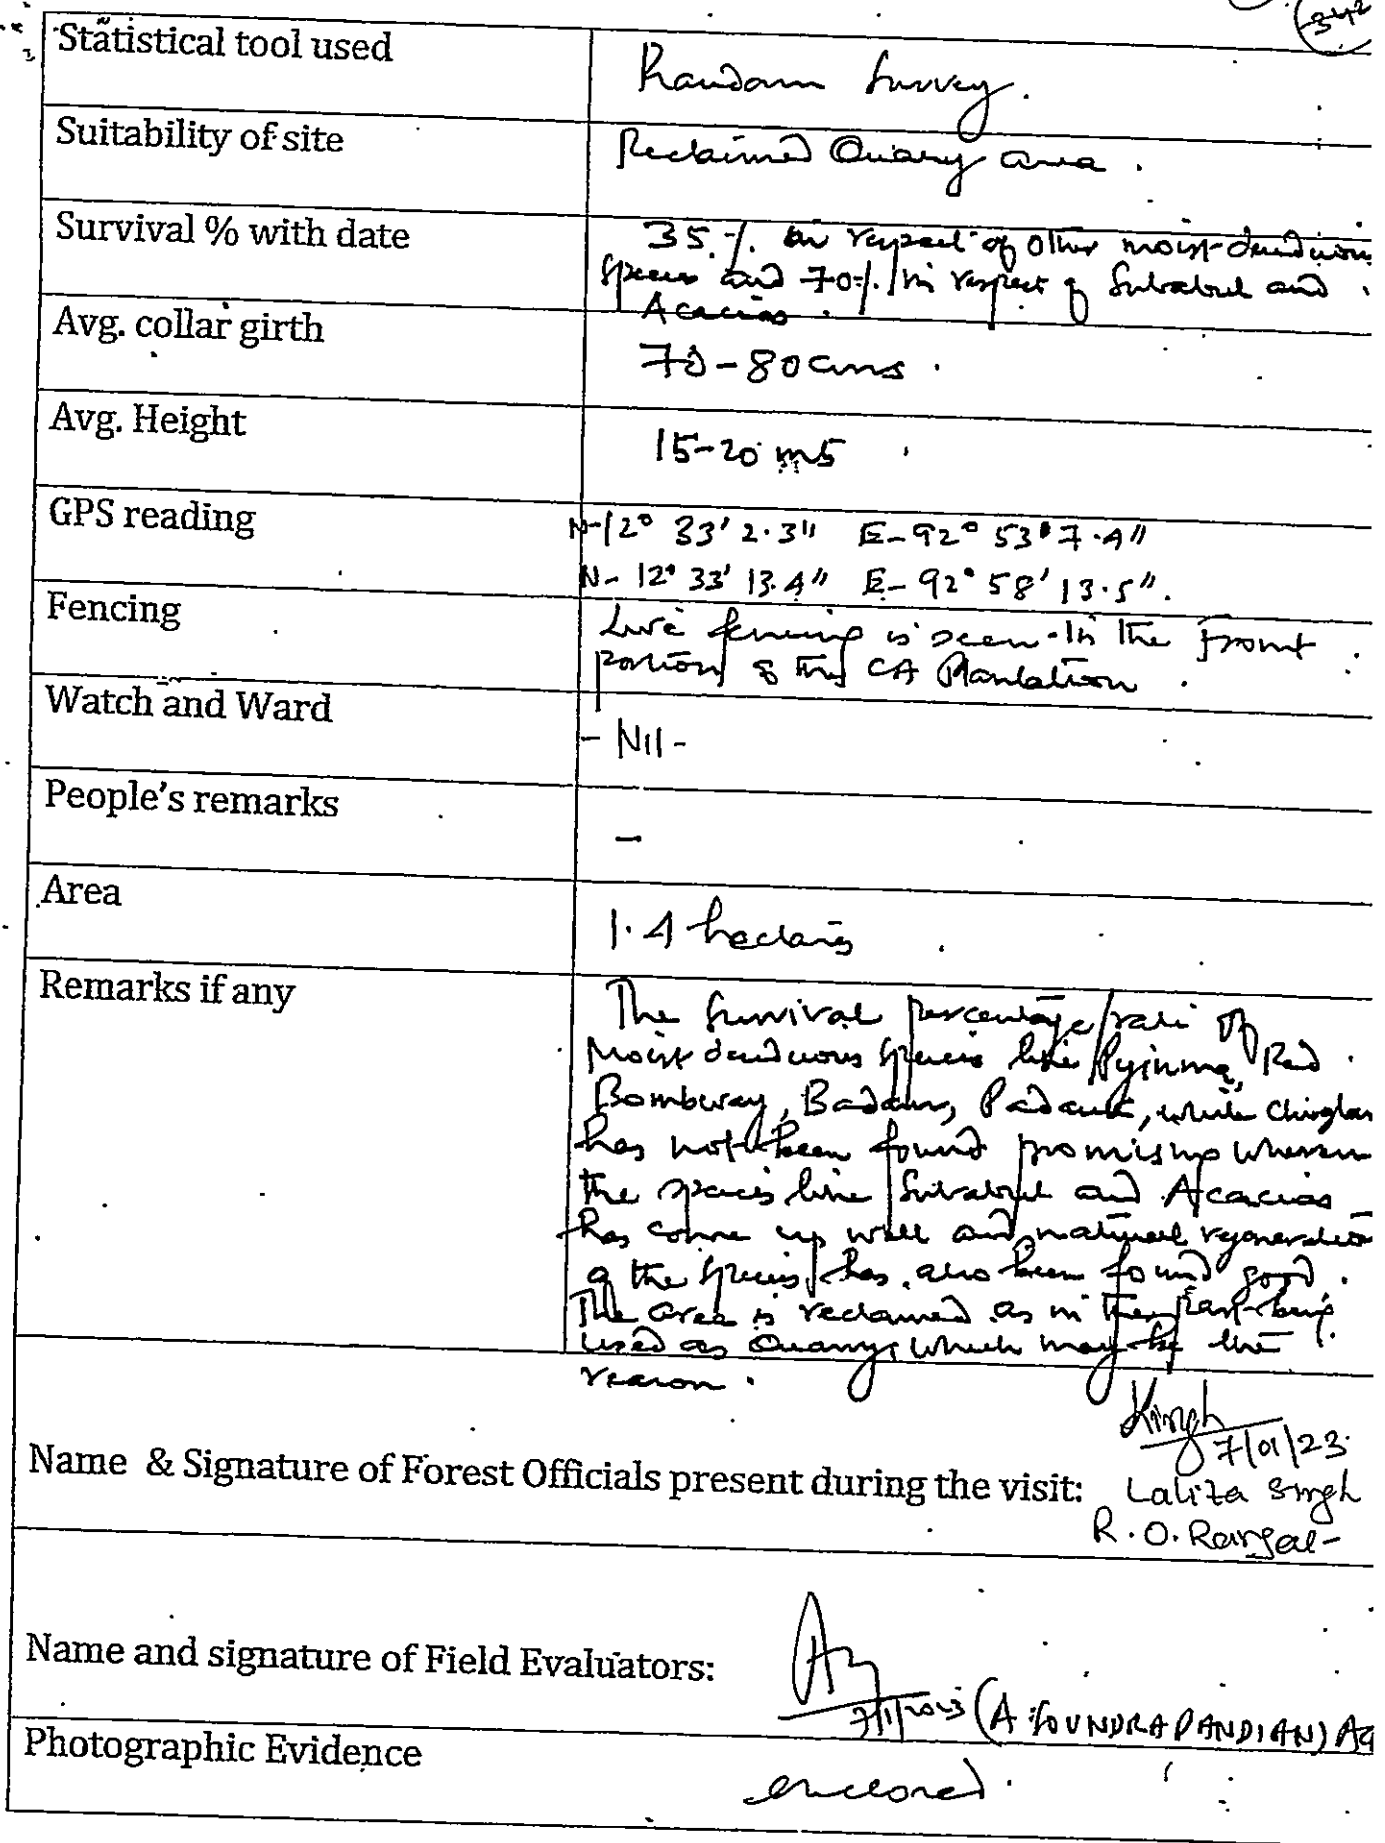 342
Statistical tool used
Random Survey.
Suitability of site
Reclaimed Quarry area.
Survival % with date
35% in respect of other moist deciduous
Species and 70% in respect of Subabul and
Acacias.
Avg. collar girth
70-80 cms.
Avg. Height
15-20 mts
GPS reading
N-12° 33' 2.3" E-92° 53' 7.4"
N-12° 33' 13.4" E-92° 58' 13.5".
Fencing
Live fencing is seen in the front
portion of the CA Plantation.
Watch and Ward
- Nil -
People's remarks
–
Area
1.4 hectares
Remarks if any
The Survival percentage rate of
Moist deciduous species like Pyinma, Red
Bombway, Badam, Padauk, white Chuglam
has not been found promising wherein
the species like Subabul and Acacias
has come up well and natural regeneration
of the species has also been found good.
The area is reclaimed as in the past being
used as Quarry, which may be the
reason.
Singh
7/01/23
Name & Signature of Forest Officials present during the visit: Lalita Singh
R.O. Rangat
Name and signature of Field Evaluators:
7/1/2023 (A. SOUNDRAPANDIAN)
Photographic Evidence
enclosed.